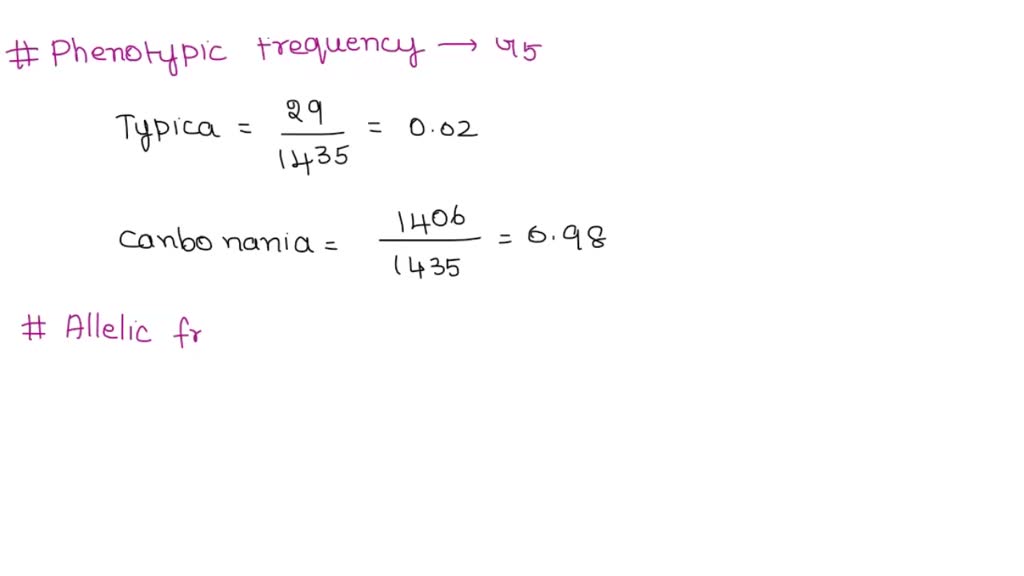 # Phenotypic frequency → G5
Typica = 29/1435 = 0.02
Canbonania = 1406/1435 = 0.98
# Allelic fr